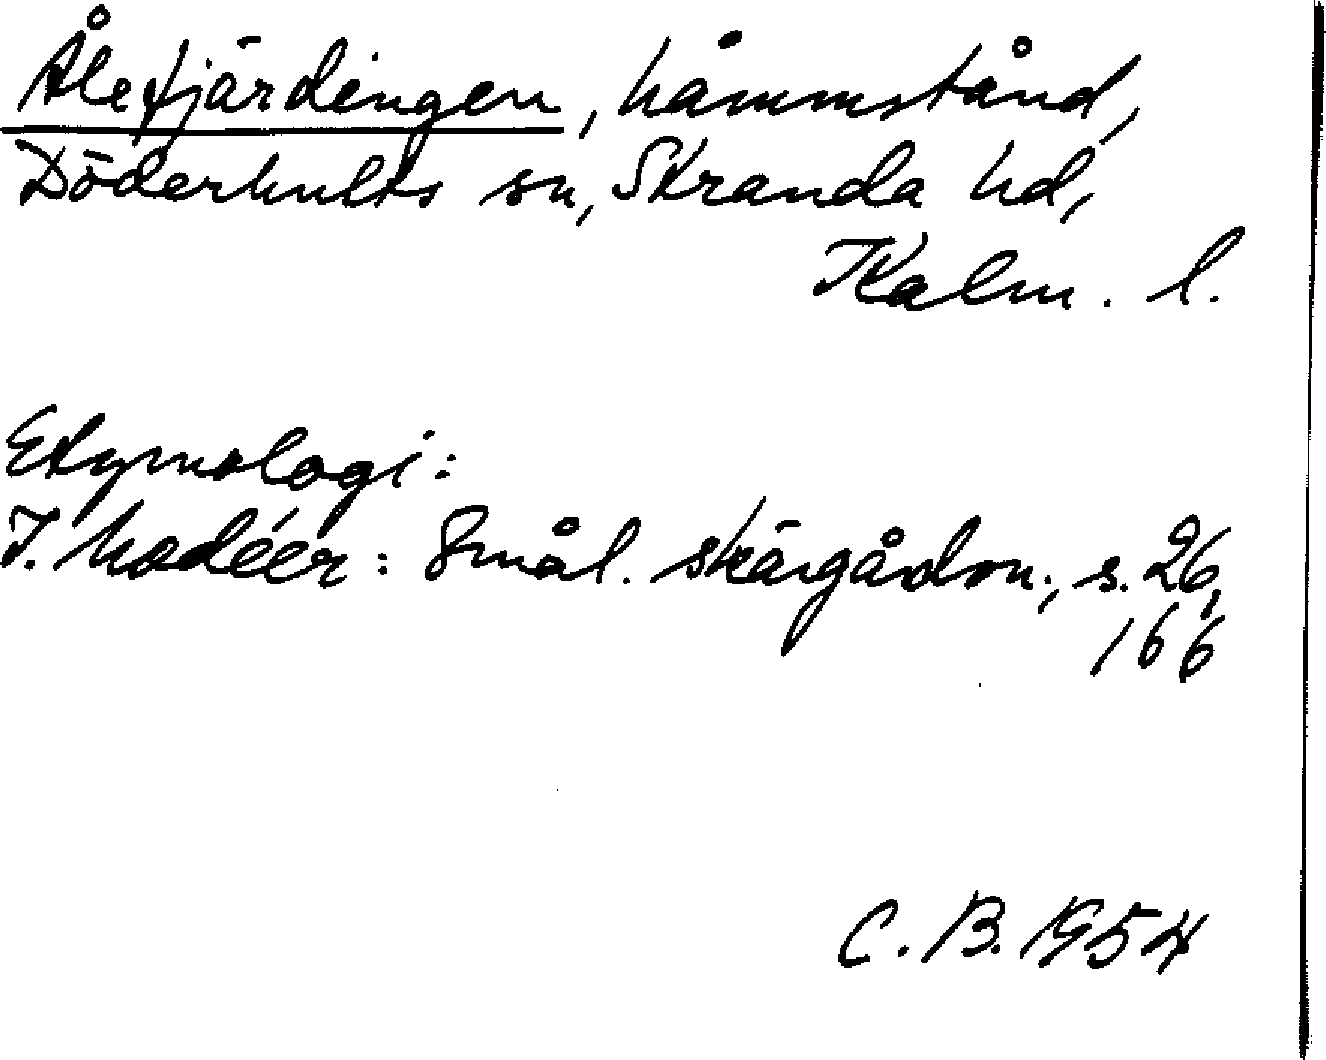 Ålefjärdingen, håmmstånd,
Döderhults sn, Stranda hd,
Kalm. l.
Etymologi:
I. Modéer: Smål. skärgårdsn., s. 26,
166
C. B. 1954